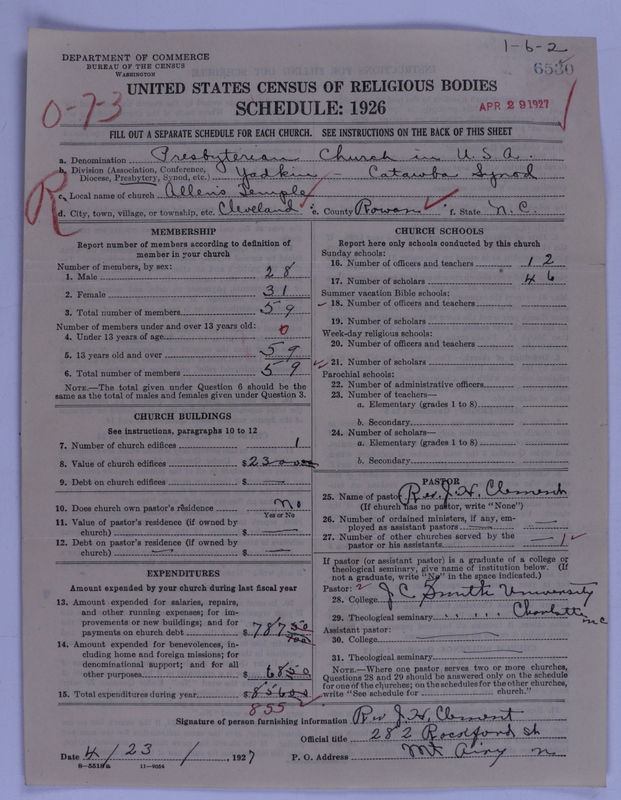 1-6-2
6530
DEPARTMENT OF COMMERCE
BUREAU OF THE CENSUS
WASHINGTON
UNITED STATES CENSUS OF RELIGIOUS BODIES
SCHEDULE: 1926
0-7-3
APR 29 1927
FILL OUT A SEPARATE SCHEDULE FOR EACH CHURCH. SEE INSTRUCTIONS ON THE BACK OF THIS SHEET
a. Denomination Presbyterian Church in U.S.A.
b. Division (Association, Conference, Diocese, Presbytery, Synod, etc.) Yadkin - Catawba Synod
R
c. Local name of church Allen's Temple
d. City, town, village, or township, etc. Cleveland e. County Rowan f. State N.C.
MEMBERSHIP
Report number of members according to definition of
member in your church
Number of members, by sex:
1. Male 28
2. Female 31
3. Total number of members 59
Number of members under and over 13 years old:
4. Under 13 years of age 0
5. 13 years old and over 59
6. Total number of members 59
NOTE.—The total given under Question 6 should be the
same as the total of males and females given under Question 3.
CHURCH BUILDINGS
See instructions, paragraphs 10 to 12
7. Number of church edifices 1
8. Value of church edifices $ 23
9. Debt on church edifices $ —
10. Does church own pastor's residence no
Yes or No
11. Value of pastor's residence (if owned by
church) $ —
12. Debt on pastor's residence (if owned by
church) — $ —
EXPENDITURES
Amount expended by your church during last fiscal year
13. Amount expended for salaries, repairs,
and other running expenses; for im-
provements or new buildings; and for
payments on church debt $ 787 50
14. Amount expended for benevolences, in-
cluding home and foreign missions; for
denominational support; and for all
other purposes $ 68 50
15. Total expenditures during year $ 856 00
855
CHURCH SCHOOLS
Report here only schools conducted by this church
Sunday schools:
16. Number of officers and teachers 12
17. Number of scholars 46
Summer vacation Bible schools:
18. Number of officers and teachers
19. Number of scholars
Week-day religious schools:
20. Number of officers and teachers
21. Number of scholars
Parochial schools:
22. Number of administrative officers
23. Number of teachers—
a. Elementary (grades 1 to 8)
b. Secondary
24. Number of scholars—
a. Elementary (grades 1 to 8)
b. Secondary
PASTOR
25. Name of pastor Rev. J. H. Clement
(If church has no pastor, write "None")
26. Number of ordained ministers, if any, em-
ployed as assistant pastors —
27. Number of other churches served by the
pastor or his assistants — 1
If pastor (or assistant pastor) is a graduate of a college or
theological seminary, give name of institution below. (If
not a graduate, write "No" in the space indicated.)
Pastor:
28. College J C Smith University
29. Theological seminary " " " " Charlotte NC
Assistant pastor:
30. College
31. Theological seminary
NOTE.—Where one pastor serves two or more churches,
Questions 28 and 29 should be answered only on the schedule
for one of the churches; on the schedules for the other churches,
write "See schedule for church."
Signature of person furnishing information Rev J. H. Clement
Official title 282 Rockford St
Date 4/23/, 1927 P. O. Address Mt Airy N
8-5518a 11-9054